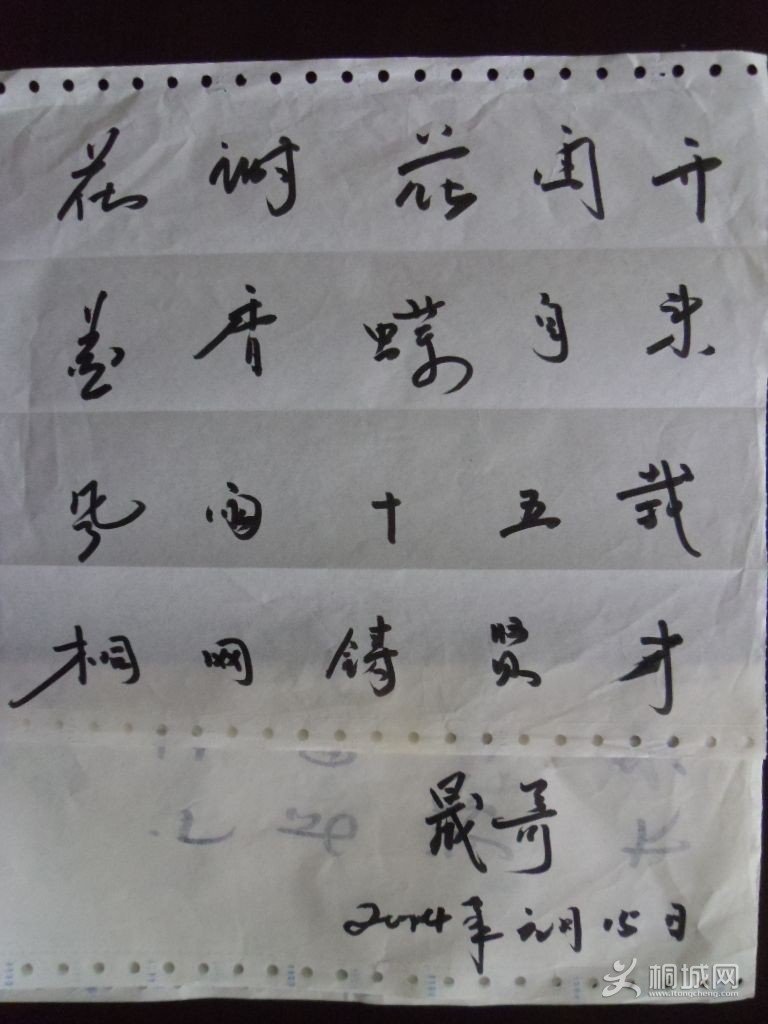 花谢花开
香蝶自来
风雨十五载
桐网铸贤才
晟哥
2014年元月15日
桐城网
www.1tongcheng.com